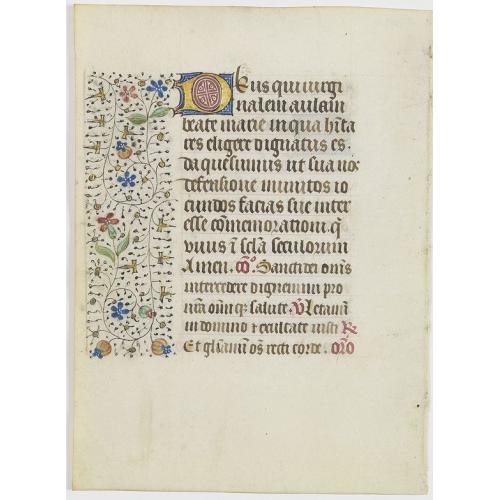 Deus qui virgi
nalem aulam
beate marie in qua hīta
res eligere dignatus es.
da quesumus ut sua nos
defensione munitos io
cundos facias sue inter
esse cōmemorationi. q̄
vivis ī scl̄a seculorum
Amen. Sancti dei om̄s
intercedere dignemini pro
n̄ra om̄ium qz salute. V Letamī
in domino et exultate iusti R
Et gl̄iamī os̄ recti corde. or̄o